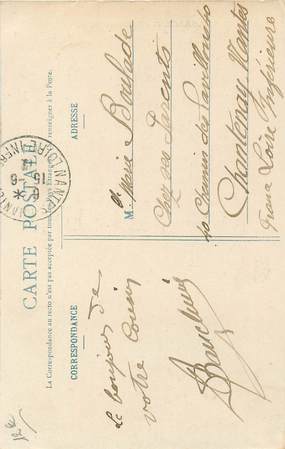 CARTE POSTALE
La Correspondance au recto n'est pas acceptée par tous les pays Étrangers renseignés à la Poste.
CORRESPONDANCE
ADRESSE
Le bonjour de
votre cousin
M. Marie
Chez ses Parents
10 Chemin des Pavillons
Chantenay Nantes
Loire Inférieure
NANTES
LOIRE INFRE